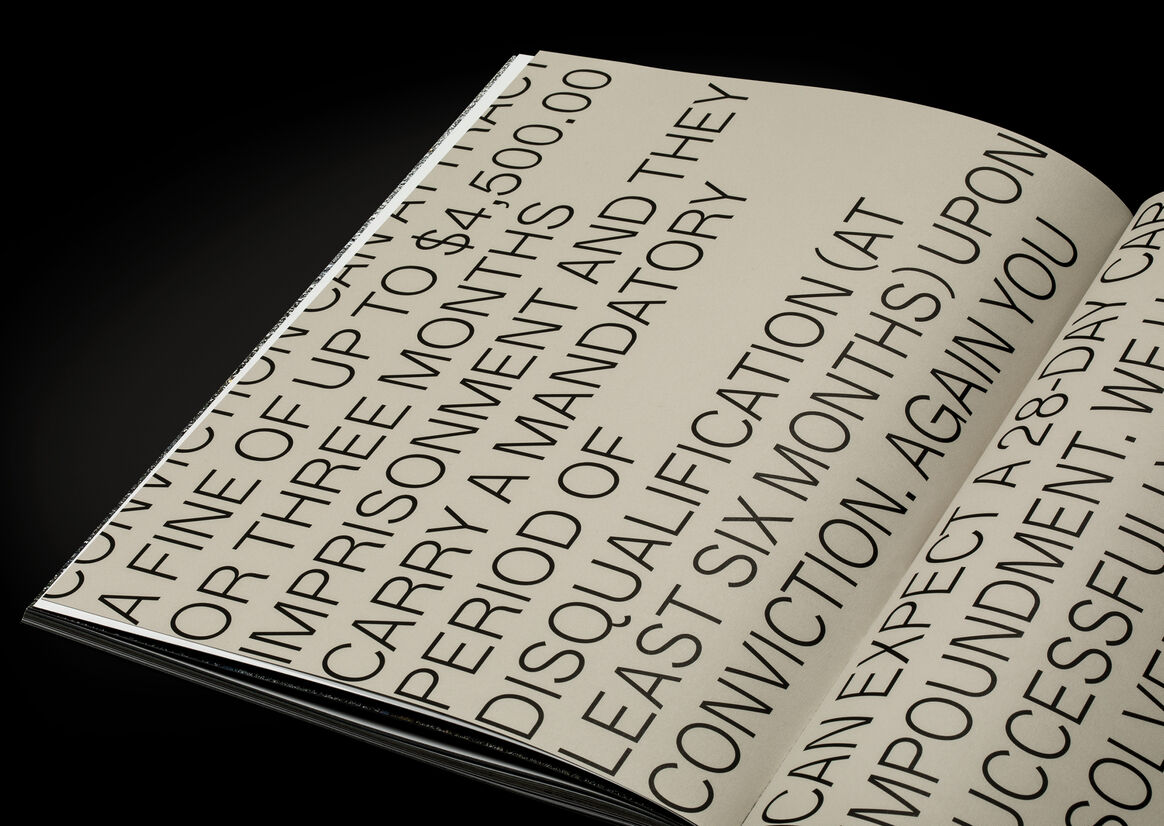 CONVICTION CAN ATTRACT
A FINE OF UP TO $4,500.00
OR THREE MONTHS
IMPRISONMENT AND THEY
CARRY A MANDATORY
PERIOD OF
DISQUALIFICATION (AT
LEAST SIX MONTHS) UPON
CONVICTION. AGAIN YOU
CAN EXPECT A 28-DAY CAR
IMPOUNDMENT. WE
SUCCESSFULLY